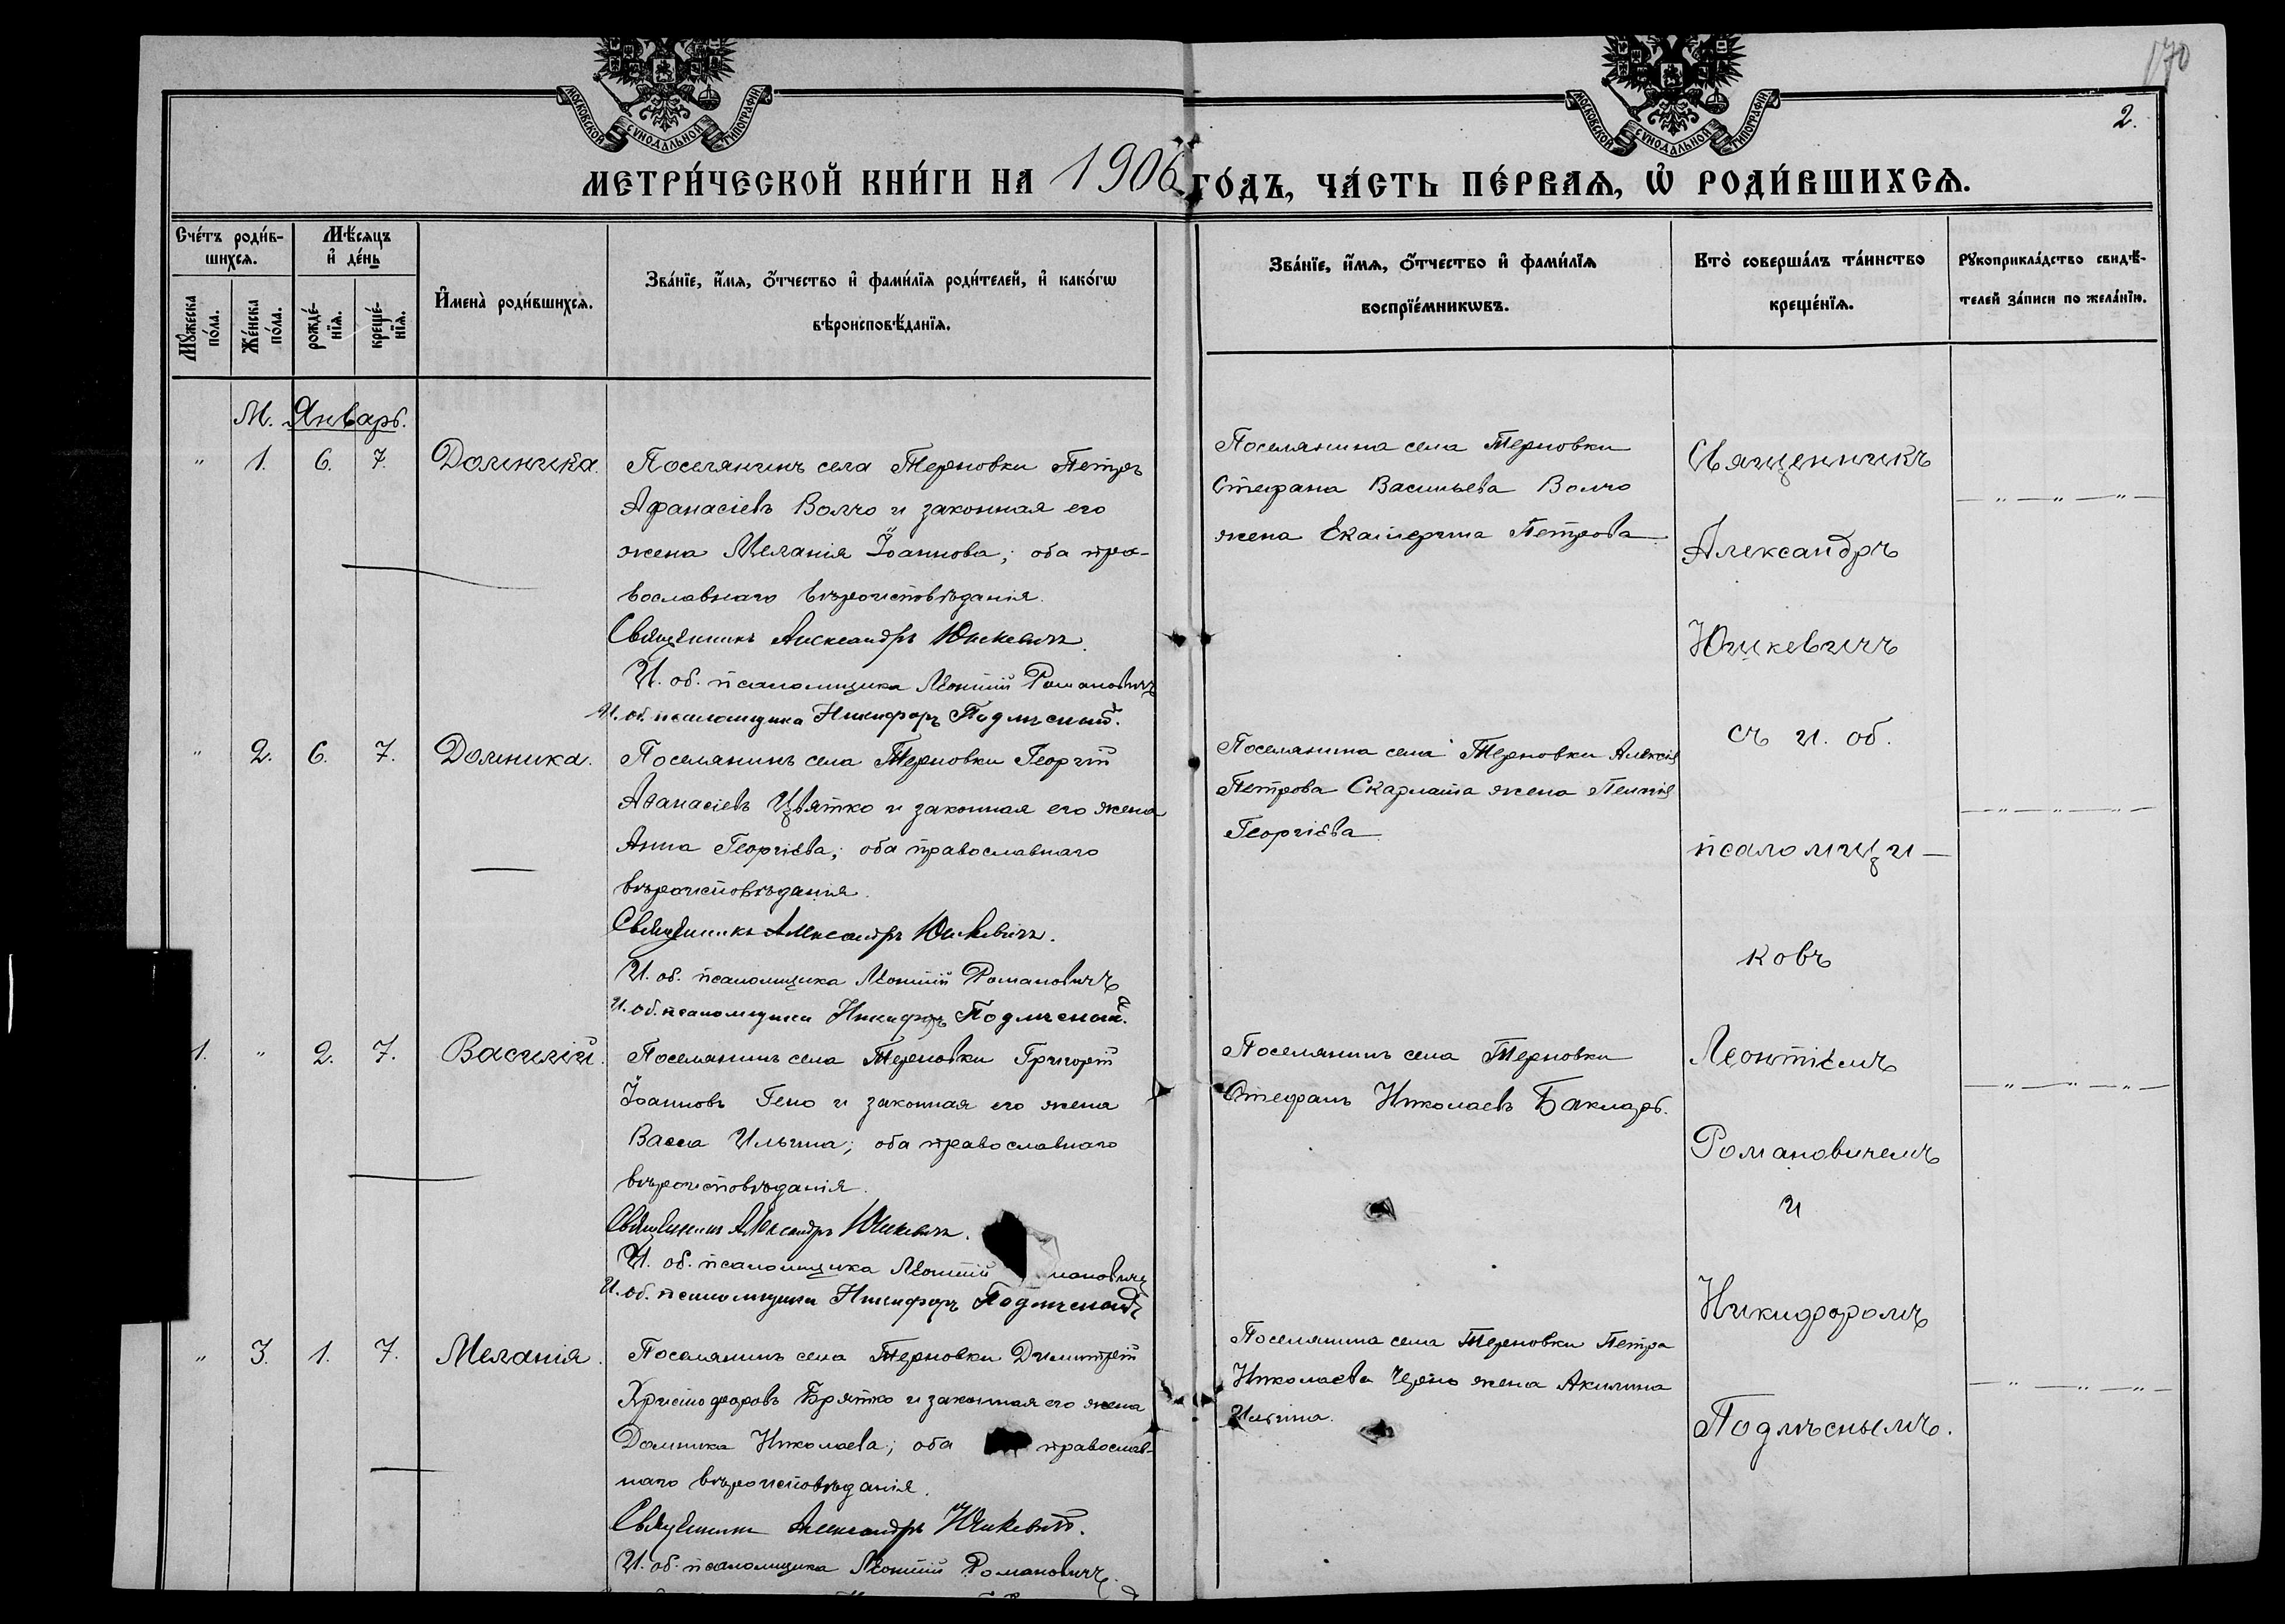 170
2.
МОСКОВСКОЙ СѴНОДАЛЬНОЙ ТИПОГРАФІИ
МОСКОВСКОЙ СѴНОДАЛЬНОЙ ТИПОГРАФІИ
МЕТРИ́ЧЕСКОЙ КНИ́ГИ НА 1906 ГО́ДЪ, ЧА́СТЬ ПЕ́РВАѦ, Ѡ҆ РОДИ́ВШИХСѦ.
Сче́тъ роди́в-
шихсѧ.
Мѣ́сѧцъ
и҆ де́нь
Мꙋ́жеска
по́ла.
Же́нска
по́ла.
рожде́-
нїѧ.
креще́-
нїѧ.
И҆мена̀ роди́вшихсѧ.
Зва́нїе, и҆́мѧ, ѻ҆́тчество и҆ фами́лїѧ роди́телей, и҆ како́гѡ
вѣроисповѣ́данїѧ.
Зва́нїе, и҆́мѧ, ѻ҆́тчество и҆ фами́лїѧ
воспрїе́мникѡвъ.
Кто̀ соверша́лъ та́инство
креще́нїѧ.
Рꙋкоприкла́дство свидѣ́-
телей за́писи по жела́нїю.
М. Январь.
" 1. 6. 7. Домника.
Поселянинъ села Терновки Петръ
Афанасіевъ Волчо и законная его
жена Меланія Іоаннова; оба пра-
вославнаго вѣроисповѣданія.
Священникъ Александръ Юшкевичъ.
И. об. псаломщика Леонтій Романовичъ
И. об. псаломщика Никифоръ Подлѣсный.
Поселянина села Терновки
Стефана Васильева Волчо
жена Екатерина Петрова
" 2. 6. 7. Домника.
Поселянинъ села Терновки Георгій
Аѳанасіевъ Цвятко и законная его жена
Анна Георгіева; оба православнаго
вѣроисповѣданія.
Священникъ Александръ Юшкевичъ.
И. об. псаломщика Леонтій Романовичъ
И. об. псаломщика Никифоръ Подлѣсный.
Поселянина села Терновки Алексія
Петрова Скарлата жена
Георгіева
1. " 2. 7. Василій.
Поселянинъ села Терновки Григорій
Іоанновъ Гено и законная его жена
Васса Ильина; оба православнаго
вѣроисповѣданія.
Священникъ Александръ Юшкевичъ.
И. об. псаломщика Леонтій мановичъ
И. об. псаломщика Никифоръ Подлѣсный
Поселянинъ села Терновки
Стефанъ Николаевъ Бакларь.
" 3. 1. 7. Меланія.
Поселянинъ села Терновки Димитрій
Христофоровъ Брятко и законная его жена
Домника Николаева; оба православ-
наго вѣроисповѣданія.
Священникъ Александръ Юшкевичъ.
И. об. псаломщика Леонтій Романовичъ.
Поселянина села Терновки Петра
Николаева Черно жена Акилина
Ильина.
Священникъ
Александръ
Юшкевичъ
съ и. об.
псаломщи-
ковъ
Леонтіемъ
Романовичемъ
и
Никифоромъ
Подлѣснымъ.